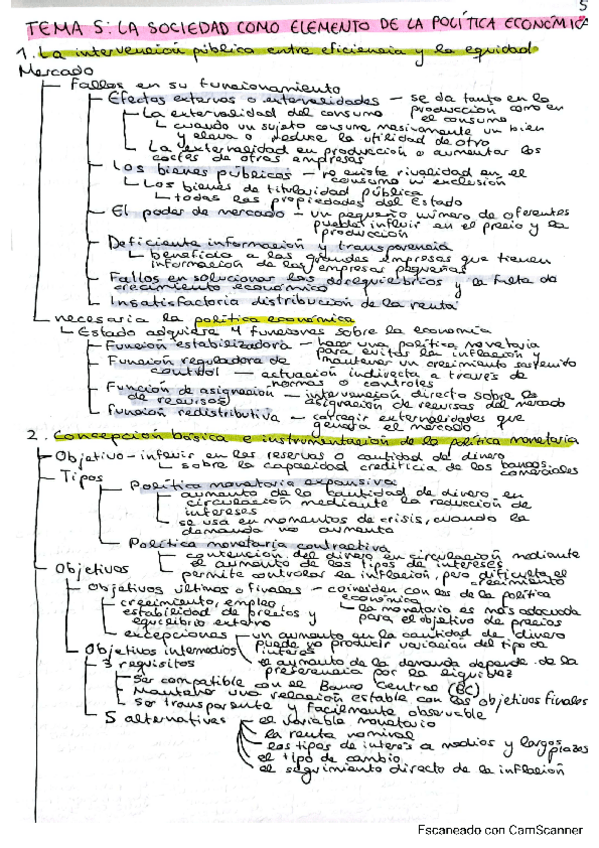 5
TEMA 5: LA SOCIEDAD COMO ELEMENTO DE LA POLÍTICA ECONÓMICA
1. La intervención pública entre eficiencia y la equidad
Mercado
Fallos en su funcionamiento
Efectos externos o externalidades - se da tanto en la
producción como en
el consumo
La externalidad del consumo
cuando un sujeto consume masivamente un bien
y eleva o reduce la utilidad de otro
La externalidad en producción o aumentar los
costes de otras empresas
Los bienes públicos - no existe rivalidad en el
consumo ni exclusión
Los bienes de titularidad pública
todas las propiedades del Estado
El poder de mercado - un pequeño número de oferentes
pueden influir en el precio y la
producción
Deficiente información y transparencia
beneficia a las grandes empresas que tienen
información de las empresas pequeñas
Fallos en solucionar los desequilibrios y la falta de
crecimiento económico
Insatisfactoria distribución de la renta
necesaria la política económica
Estado adquiere 4 funciones sobre la economía
Función estabilizadora - hacer una política monetaria
para evitar la inflación y
mantener un crecimiento sostenido
Función reguladora de
control - actuación indirecta a través de
normas o controles
Función de asignación - intervención directa sobre la
de recursos) asignación de recursos del mercado
Función redistributiva - corregir externalidades que
genera el mercado
2. Concepción básica e instrumentación de la política monetaria
Objetivo - influir en las reservas o cantidad de dinero
sobre la capacidad crediticia de los bancos
comerciales
Tipos
Política monetaria expansiva
aumento de la cantidad de dinero en
circulación mediante la reducción de
intereses
se usa en momentos de crisis, cuando la
demanda no aumenta
Política monetaria contractiva
contención del dinero en circulación mediante
el aumento de los tipos de intereses
permite controlar la inflación, pero dificulta el
crecimiento
Objetivos
Objetivos últimos o finales - coinciden con los de la política
económica
crecimiento, empleo,
estabilidad de precios y
equilibrio externo
la monetaria es más adecuada
para el objetivo de precios
excepciones - un aumento en la cantidad de dinero
puede no producir variación del tipo de
interés
el aumento de la demanda depende de la
preferencia por la liquidez
Objetivos intermedios
3 requisitos
Ser compatible con el Banco Central (BC)
Mantener una relación estable con los objetivos finales
Ser transparente y fácilmente observable
5 alternativas - el variable monetario
la renta nominal
los tipos de interés a medios y largos
plazos
el tipo de cambio
el seguimiento directo de la inflación
Escaneado con CamScanner